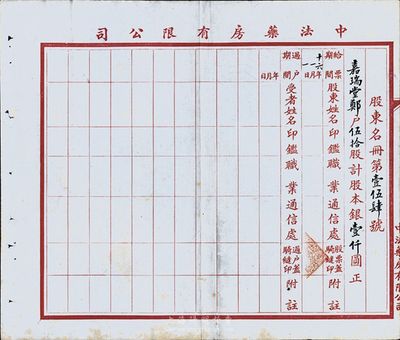 中法藥房有限公司
股東名冊第壹伍肆號
嘉瑞堂鄭戶伍拾股計股本銀壹仟圓正
給票期間 股東姓名 印鑑 職業 通信處 股票蓋騎縫印 附註
十六年一月一日
過戶期間 受者姓名 印鑑 職業 通信處 過戶蓋騎縫印 附註
年月日
中法藥房有限公司